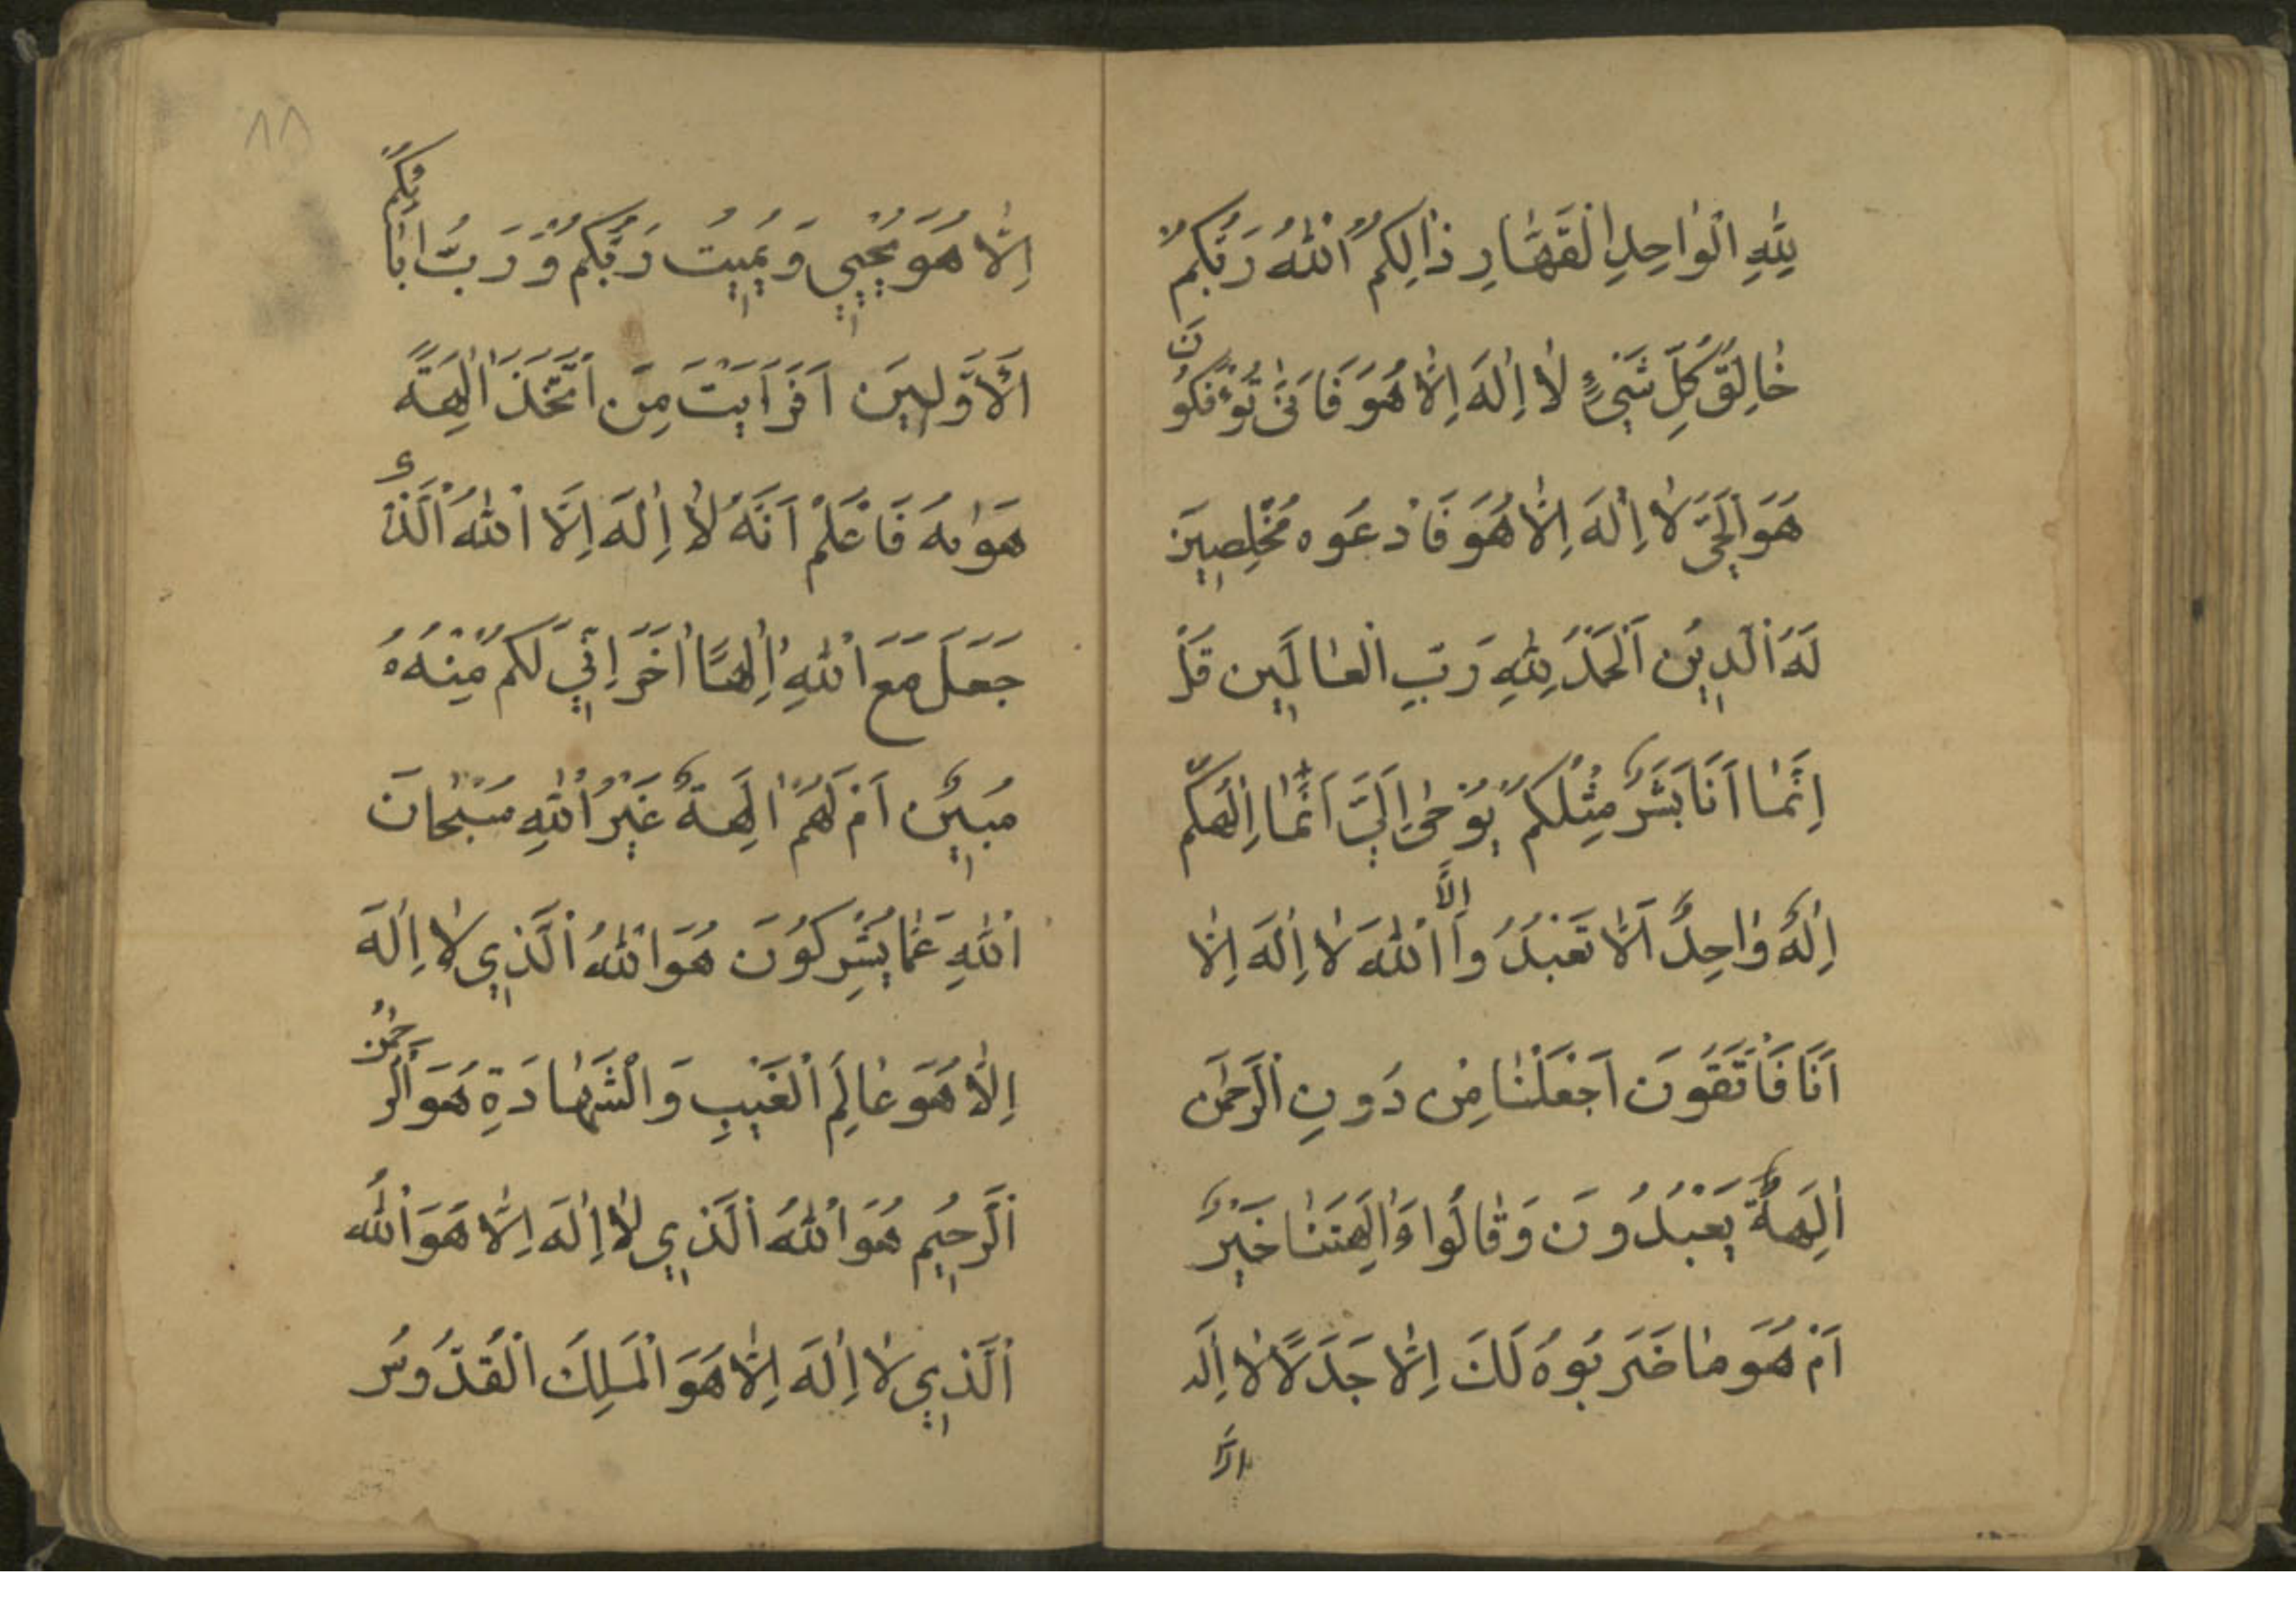 لِلّٰهِ الْوٰاحِدِ الْقَهّٰارِ ذٰالِكُمُ اللّٰهُ رَبُّكُمْ
خٰالِقُ كُلِّ شَيْءٍ لٰا اِلٰهَ اِلّٰا هُوَ فَاَنّٰى تُؤْفَكُونَ
هُوَ الْحَيُّ لٰا اِلٰهَ اِلّٰا هُوَ فَادْعُوهُ مُخْلِصِينَ
لَهُ الَّدِينَ اَلْحَمْدُ لِلّٰهِ رَبِّ الْعٰالَمِين قُلْ
اِنَّمٰا اَنَا بَشَرٌ مِثْلُكُمْ يُوحٰى اِلَيَّ اَنَّمٰا اِلٰهُكُمْ
اِلٰهٌ وٰاحِدٌ اَلّٰا تَعْبُدُوا اِلَّا اللّٰهَ لٰا اِلٰهَ اِلّٰا
اَنَا فَاتَّقُونَ اَجَعَلْنٰا مِنْ دُونِ الرَّحْمٰن
اٰلِهَةً يُعْبَدُونَ وَقٰالُوا ءَاٰلِهَتُنٰا خَيْرٌ
اَمْ هُوَ مٰا ضَرَبُوهُ لَكَ اِلّٰا جَدَلًا لٰا اِلٰه
اِلّٰا
٨٨
اِلّٰا هُوَ يُحْيِي وَيُمِيتُ رَبُّكُمْ وَرَبُّ اٰبٰائِكُمُ
الْاَوَّلِينَ اَفَرَاَيْتَ مَنِ اتَّخَذَ اِلٰهَهُ
هَوٰيهُ فَاعْلَمْ اَنَّهُ لٰا اِلٰهَ اِلَّا اللّٰهُ الَّذِي
جَعَلَ مَعَ اللّٰهِ اِلٰهًا اٰخَرَ اِنِّي لَكُمْ مِنْهُ
مُبِينٌ اَمْ لَهُمْ اِلٰهٌ غَيْرُ اللّٰهِ سُبْحٰانَ
اللّٰهِ عَمّٰا يُشْرِكُونَ هُوَ اللّٰهُ الَّذِي لٰا اِلٰهَ
اِلّٰا هُوَ عٰالِمُ الْغَيْبِ وَالشَّهٰادَةِ هُوَ الرَّحْمٰنُ
الرَّحِيمُ هُوَ اللّٰهُ الَّذِي لٰا اِلٰهَ اِلّٰا هُوَ اللّٰهُ
الَّذِي لٰا اِلٰهَ اِلّٰا هُوَ الْمَلِكُ الْقُدُّوسُ